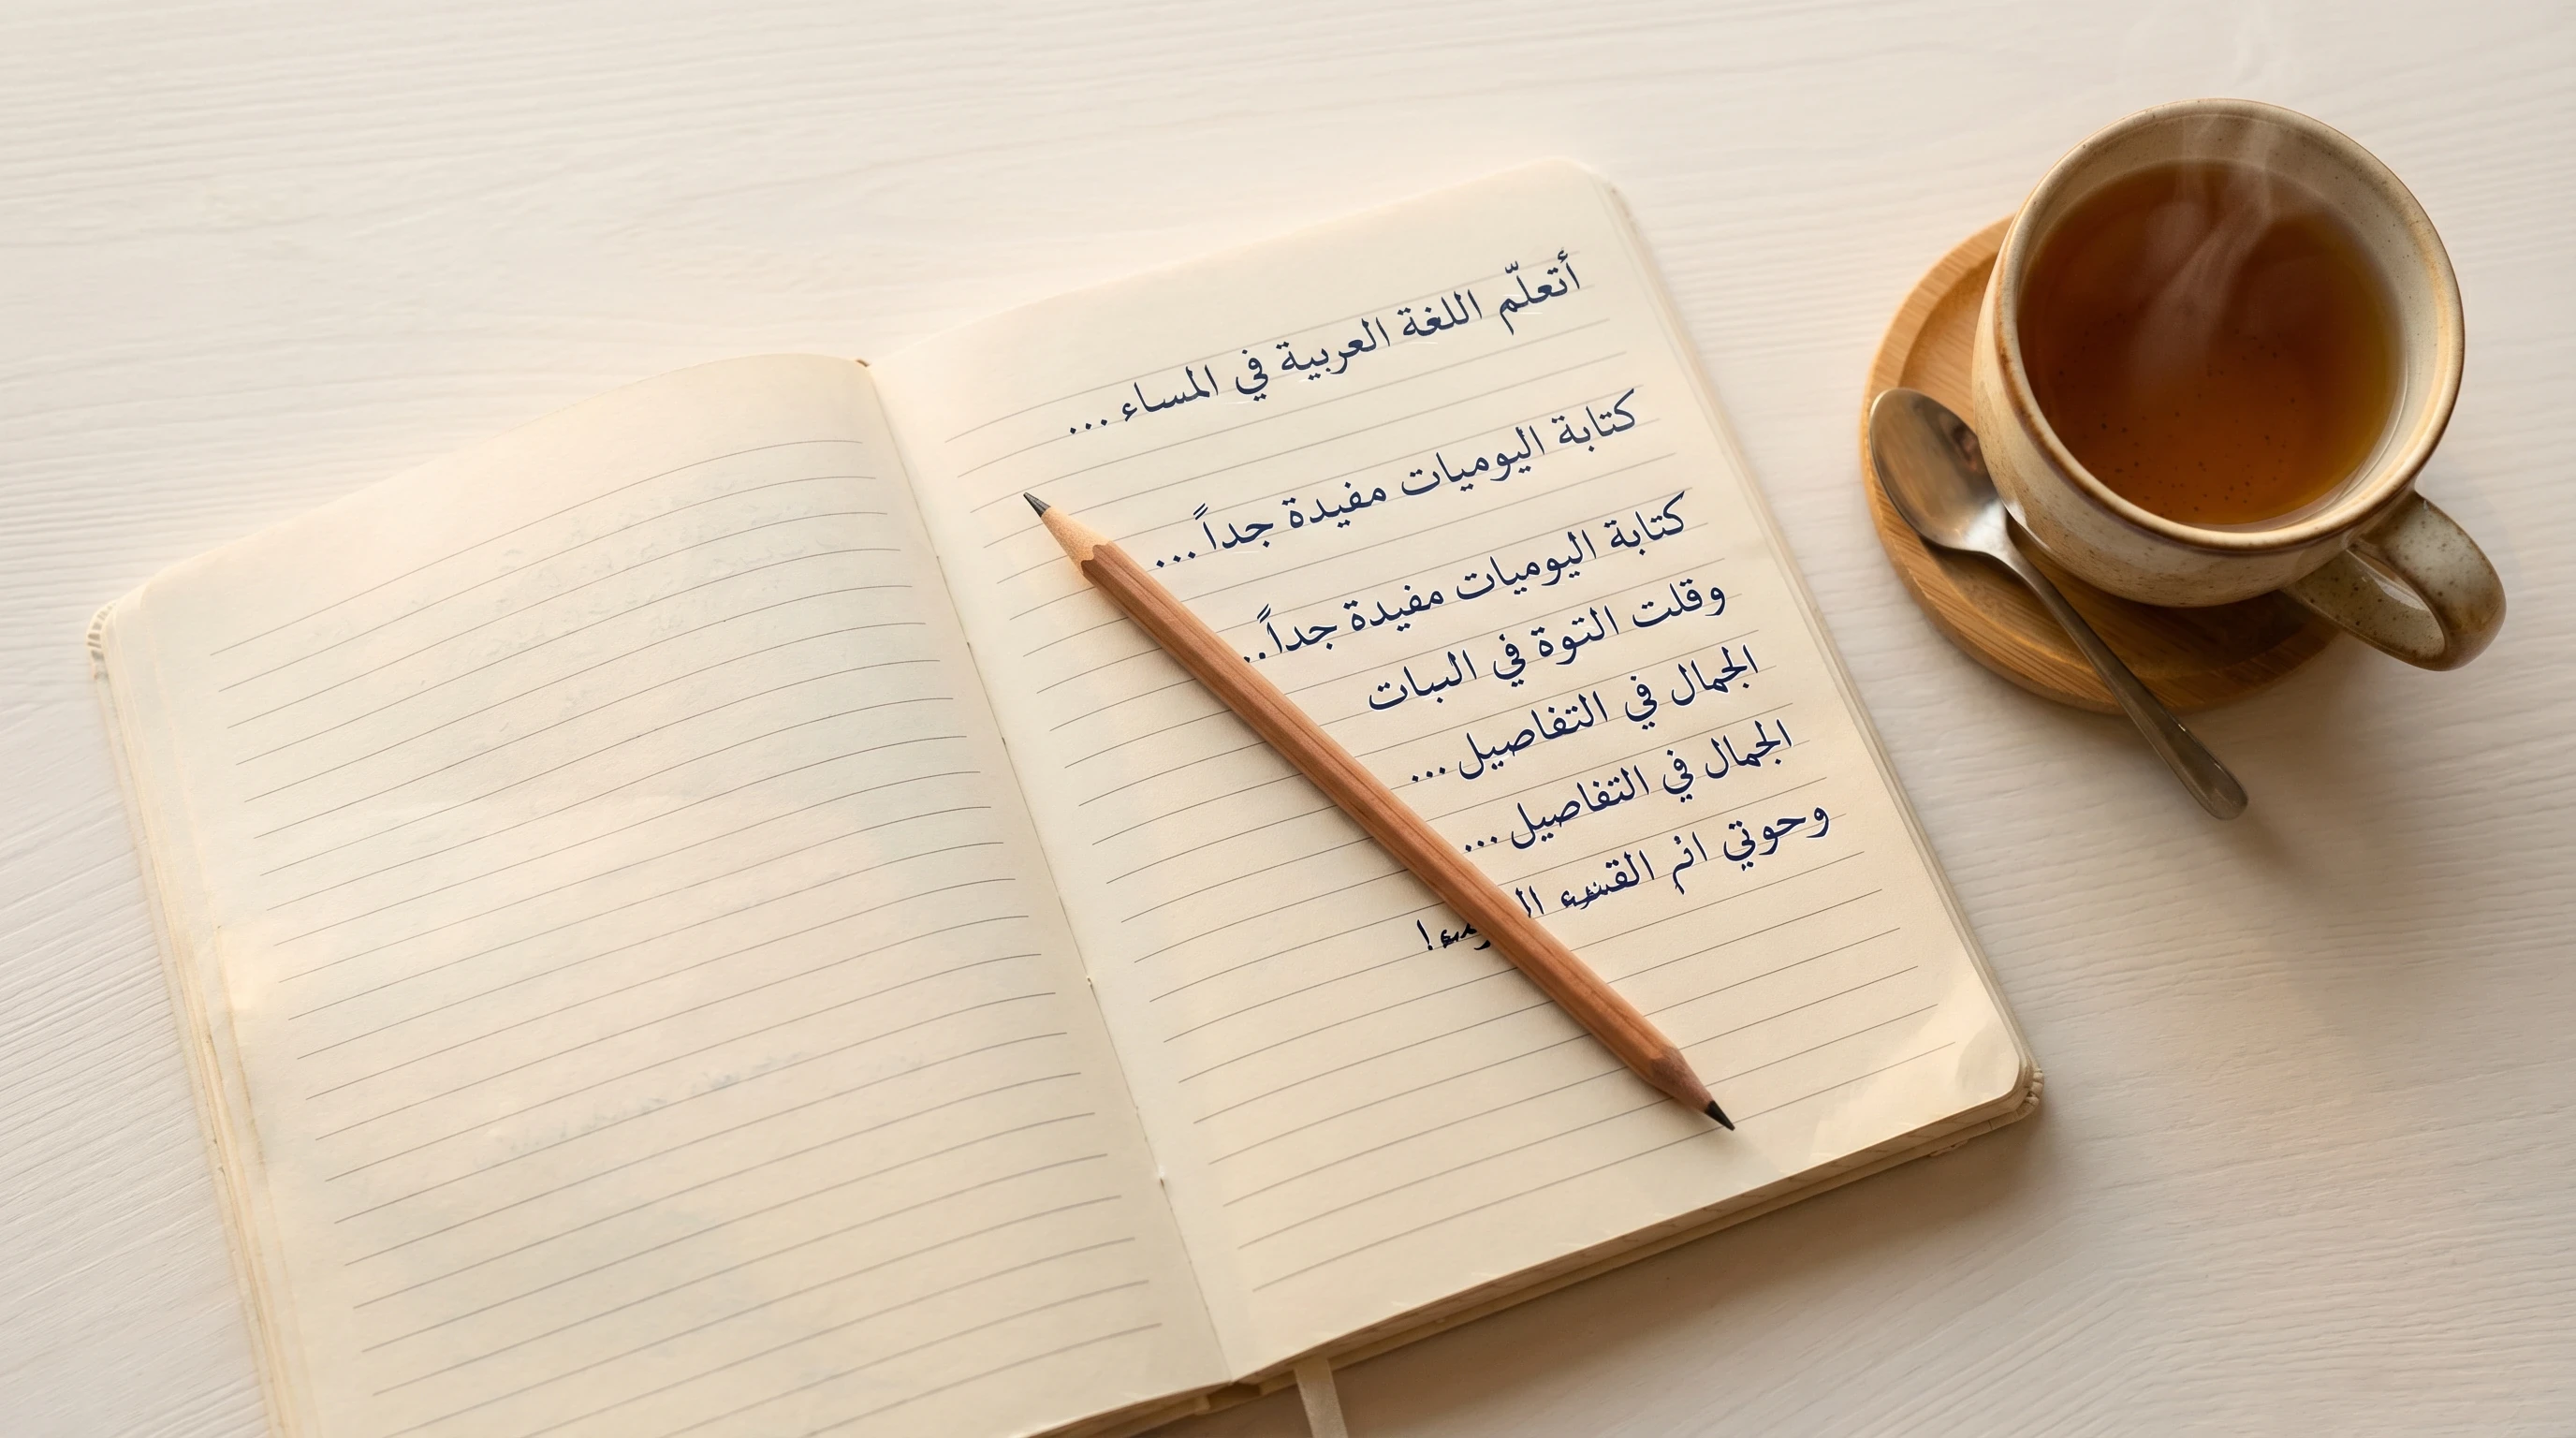 أتعلّم اللغة العربية في المساء...
كتابة اليوميات مفيدة جداً...
كتابة اليوميات مفيدة جداً..
وقلت التوة في الببات
الجمال في التفاصيل...
الجمال في التفاصيل...
وحوتي انم